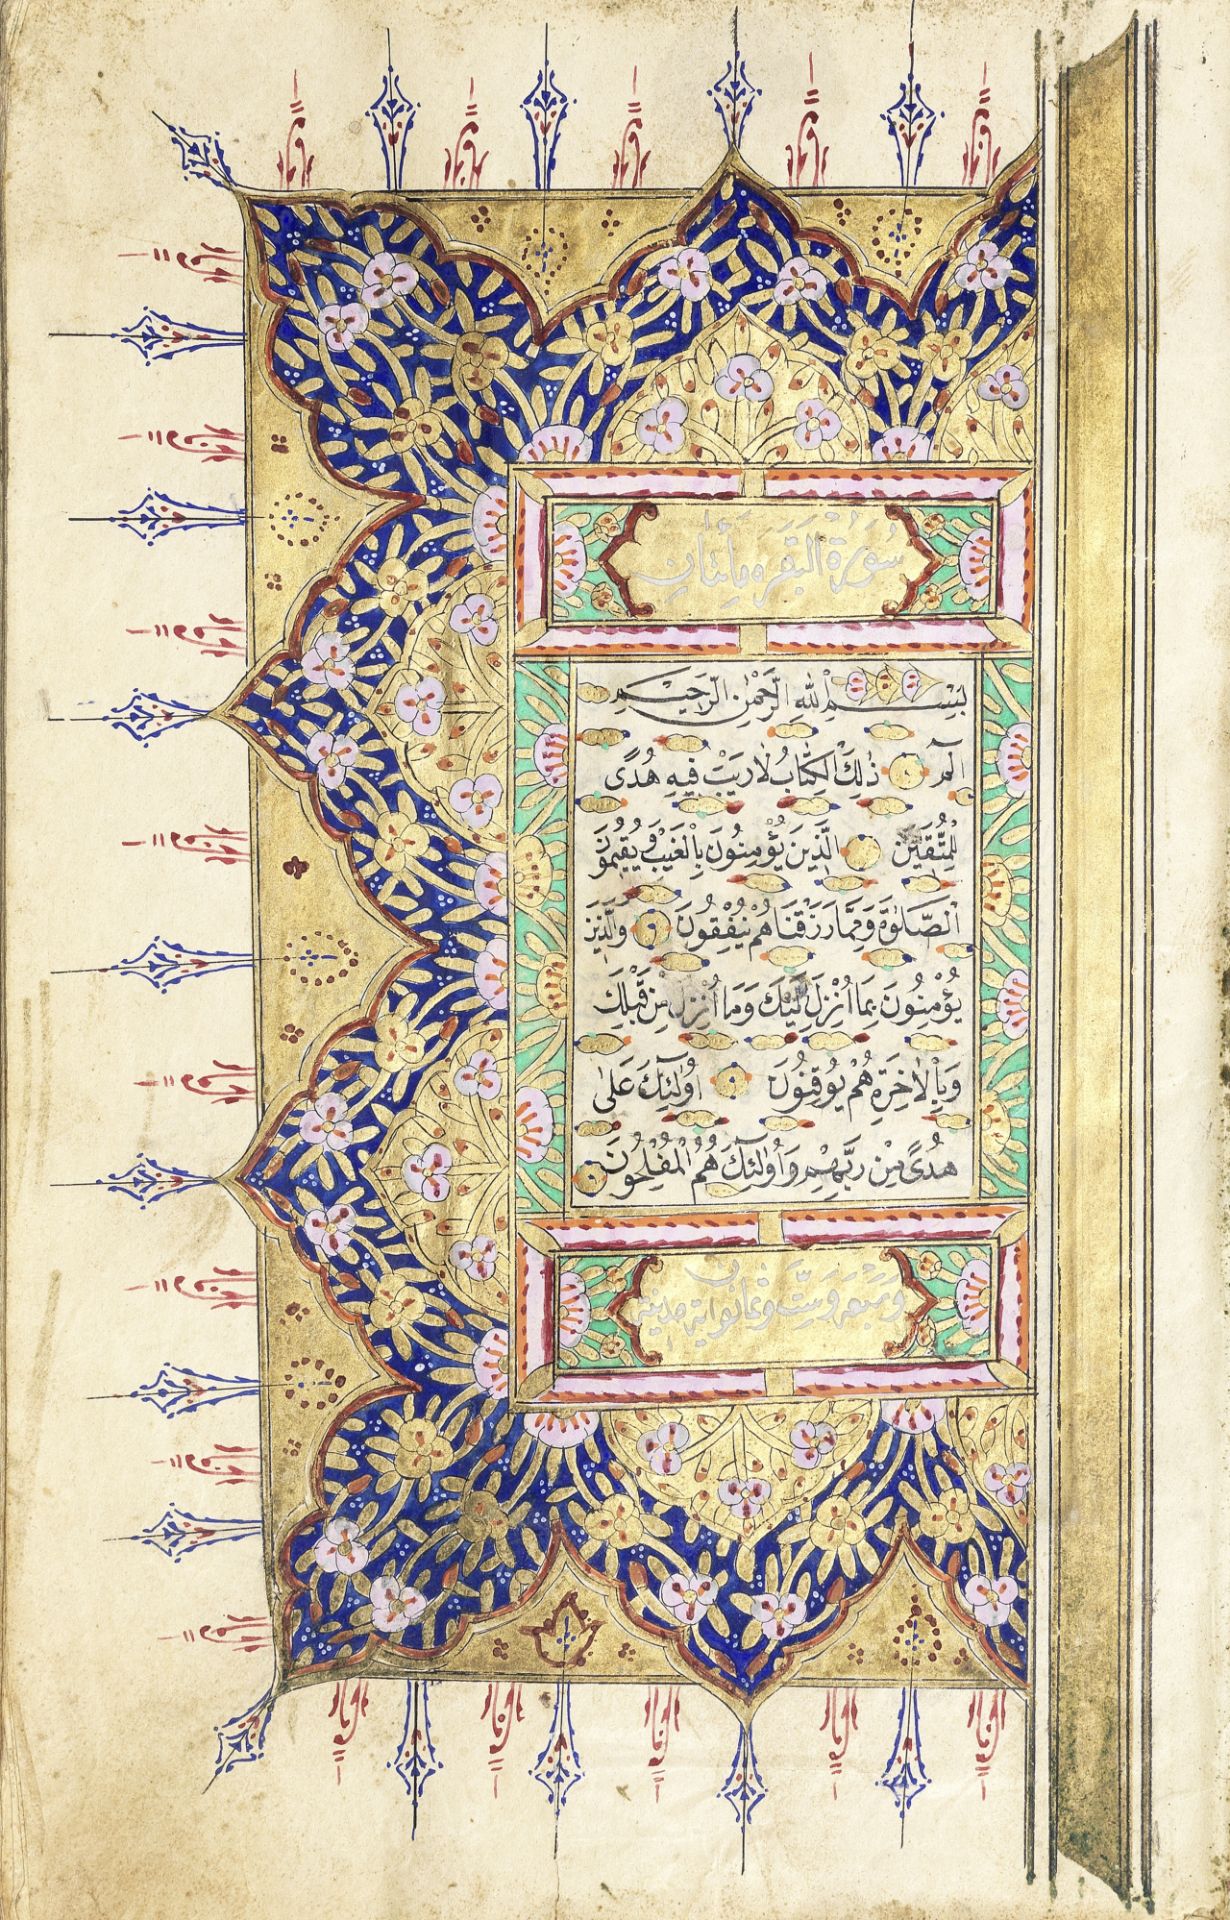 سُورَةُ الْبَقَرَه مِأَتَانِ
بِسْمِ اللهِ الرَّحْمٰنِ الرَّحِيمِ
الٓمٓ ذٰلِكَ الْكِتَابُ لَارَيْبَ فِيهِ هُدًى
لِلْمُتَّقِينَ الَّذِينَ يُؤْمِنُونَ بِالْغَيْبِ وَيُقِيمُونَ
الصَّلٰوةَ وَمِمَّا رَزَقْنَاهُمْ يُنْفِقُونَ وَالَّذِينَ
يُؤْمِنُونَ بِمَا اُنْزِلَ اِلَيْكَ وَمَا اُنْزِلَ مِنْ قَبْلِكَ
وَبِالْاٰخِرَةِ هُمْ يُوقِنُونَ اُولٰٓئِكَ عَلٰى
هُدًى مِنْ رَبِّهِمْ وَاُولٰٓئِكَ هُمُ الْمُفْلِحُونَ
وَسِتّ وَثمانون اية مدنية